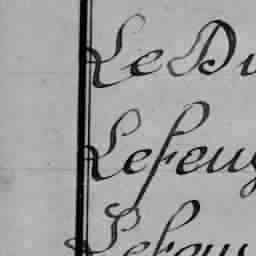 Le Du
Lefeuv
Lefeuv